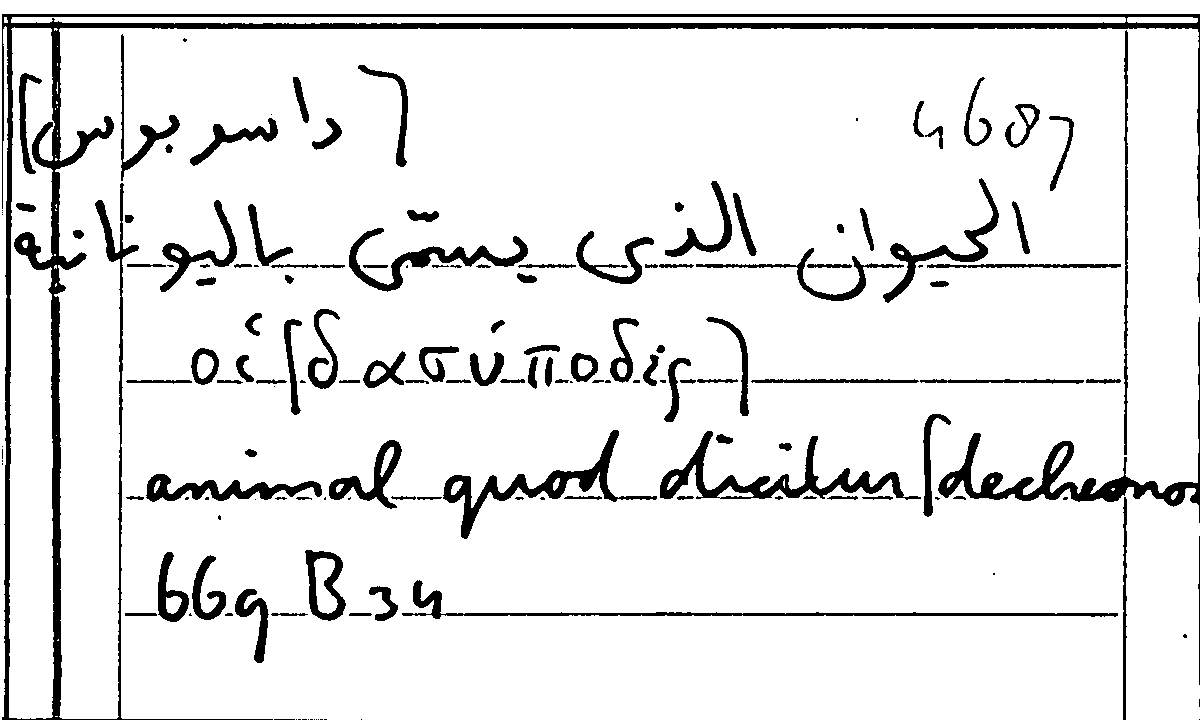 [داسوبوس] 4687
الحيوان الذى يسمّى باليونانية
οἱ [δασύποδες]
animal quod dicitur [decheono
669 B 34